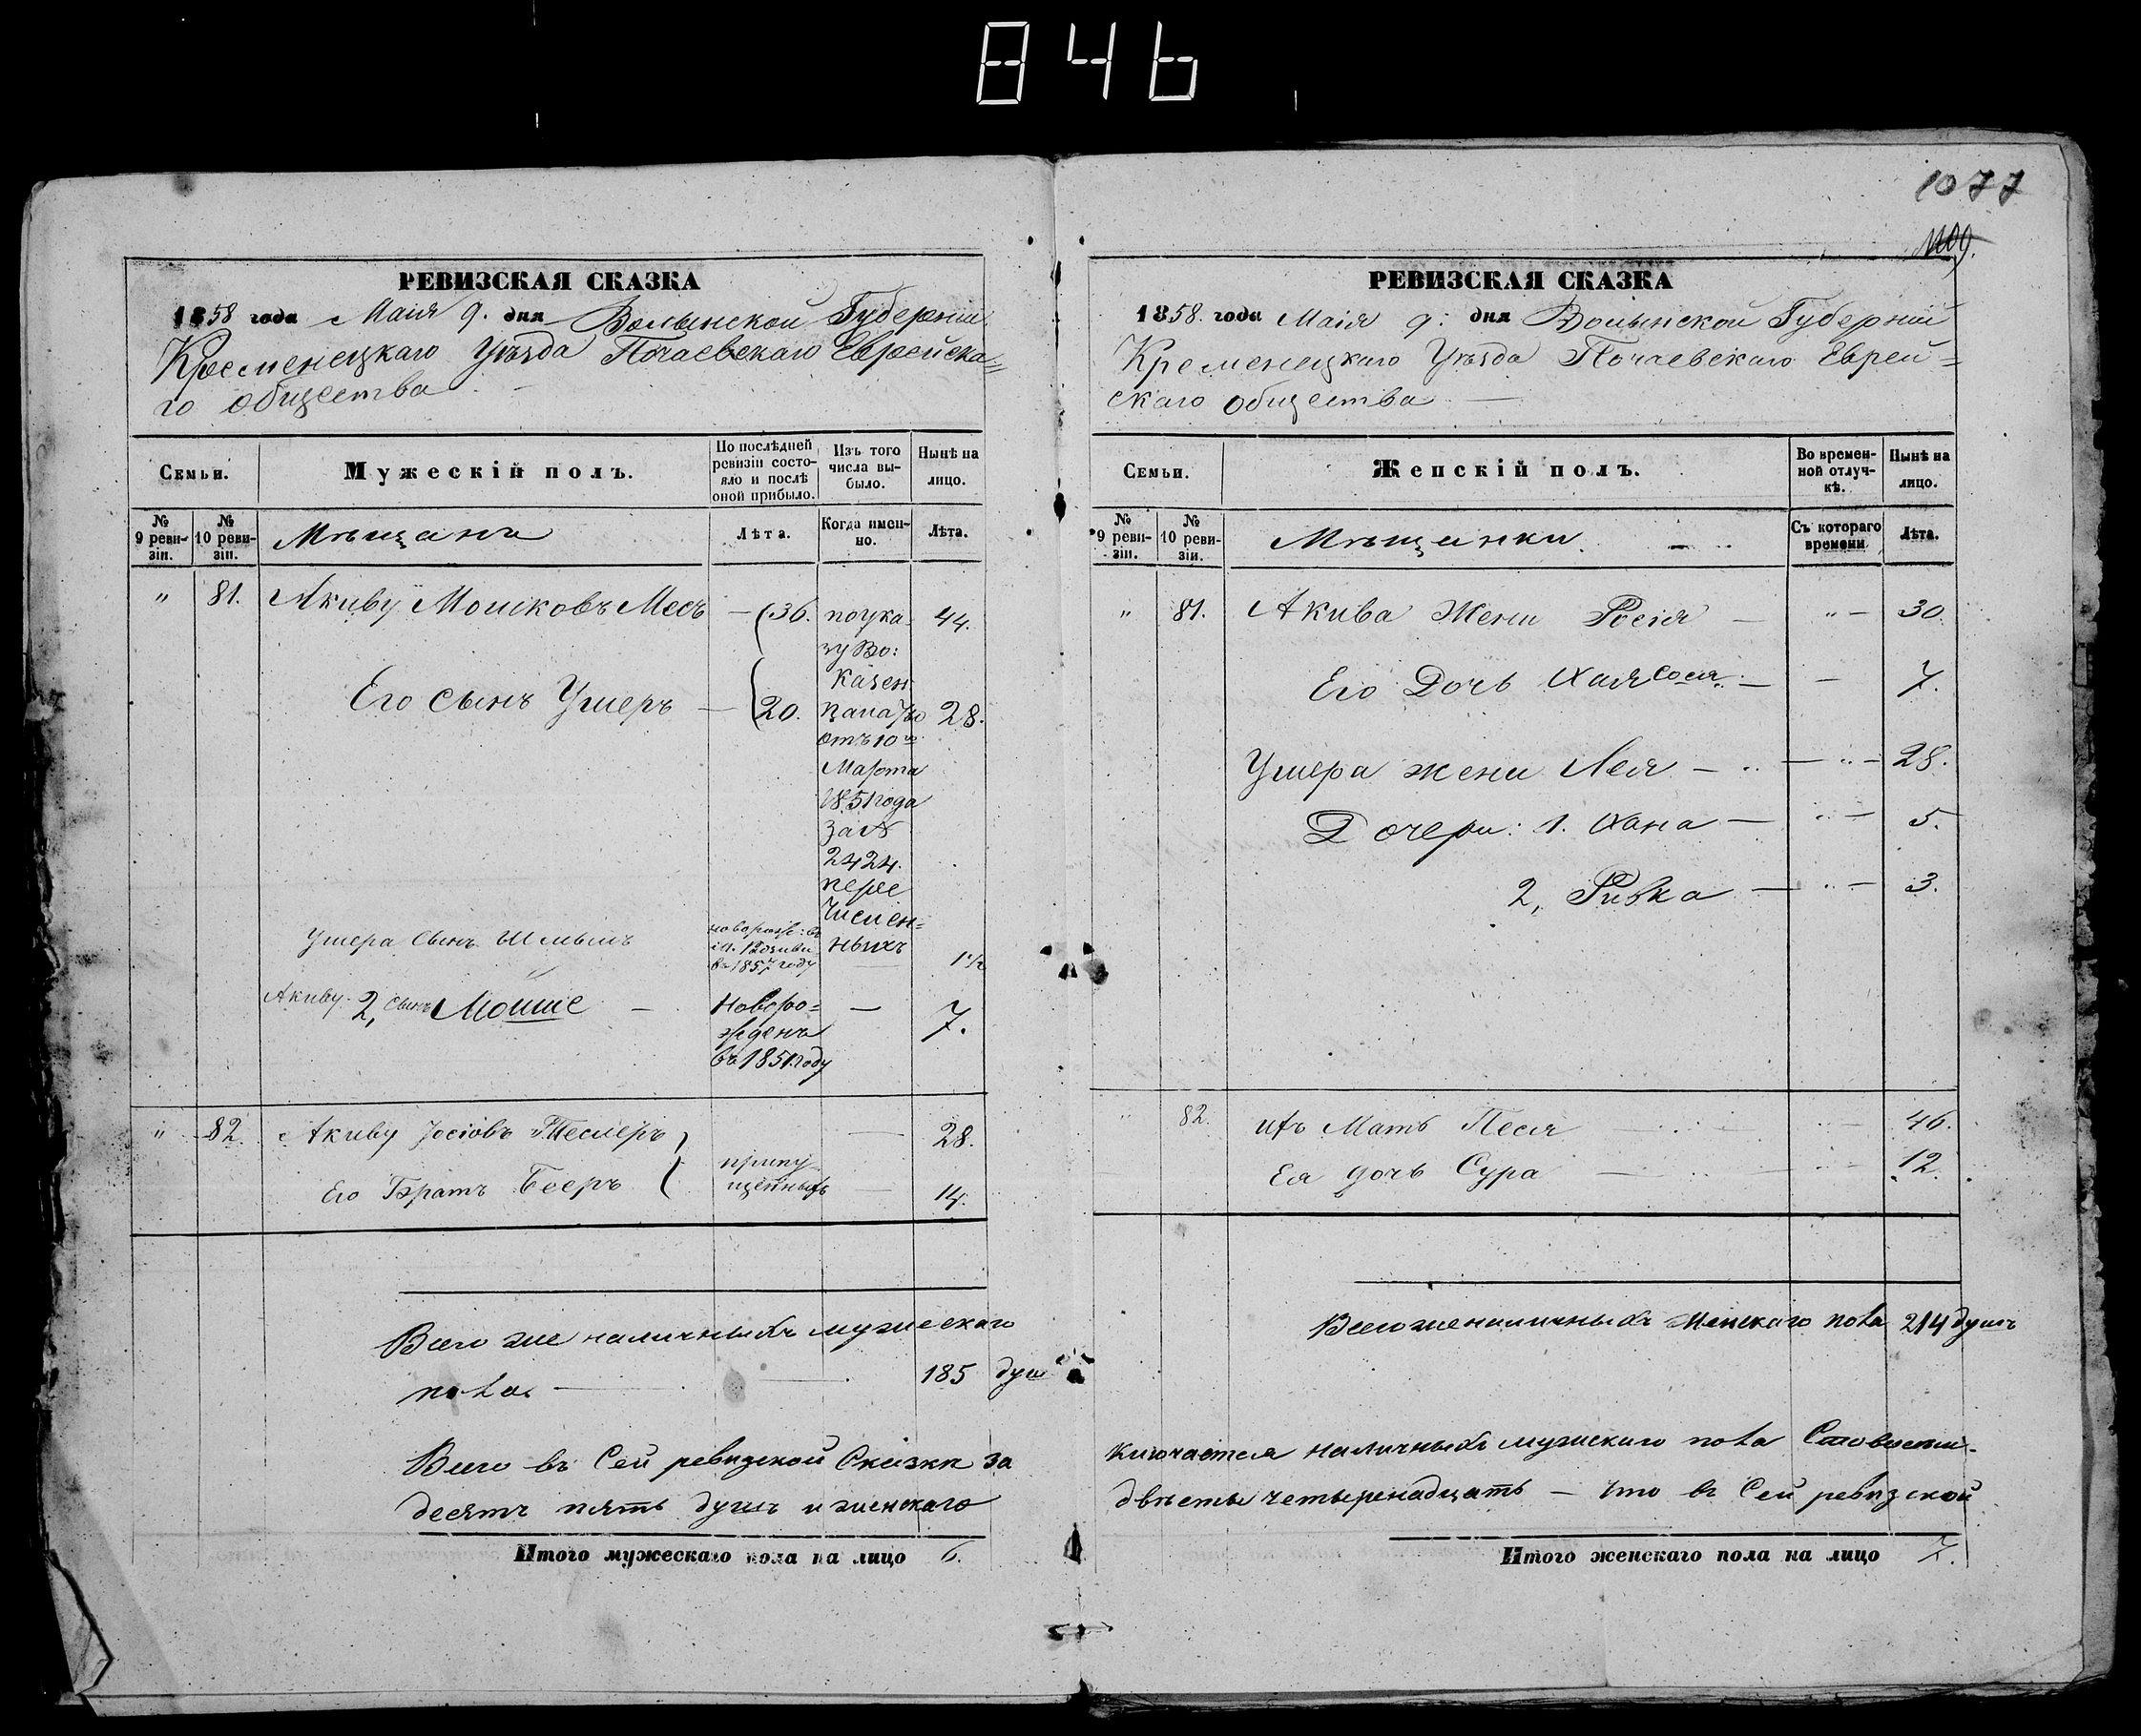 846
1077
1109.
РЕВИЗСКАЯ СКАЗКА
1858 года Маія 9. дня Волынской Губерніи
Кременецкаго Уѣзда Почаевскаго Еврейска=
го общества
Семьи.
Мужескій полъ.
По послѣдней ревизіи состо-
яло и послѣ
оной прибыло.
Изъ того
числа вы-
было.
Нынѣ на
лицо.
№
9 реви-
зіи.
№
10 реви-
зіи.
Мѣщанъ
Лѣта.
Когда имен-
но.
Лѣта.
" 81. Акиву Мошковъ Месъ — 36. 44.
Его сынъ Ушеръ — 20. 28.
по ука-
зу Во:
Казен
отъ 10го
Марта
1851 года
за №
2424.
пере
числен=
ныхъ
Ушера сынъ 1½
въ 1857 году
Акиву 2, сынъ Мошие — 7.
Новоро=
жденъ
въ 1851 году
" 82. Акиву Іосіовъ Теслеръ — 28.
Его Братъ Бееръ — 14.
припу
щенныхъ
Всего же наличныхъ мужескаго
пола — 185 душ
Всего въ Сей ревизской Сказкѣ за
десятъ пять душъ и женскаго
Итого мужескаго пола на лицо 6.
РЕВИЗСКАЯ СКАЗКА
1858. года Маія 9: дня Волынской Губерніи
Кременецкаго Уѣзда Почаевскаго Еврей=
скаго общества —
Семьи.
Женскій полъ.
Во времен-
ной отлуч-
кѣ.
Нынѣ на
лицо.
№
9 реви-
зіи.
№
10 реви-
зіи.
Мѣщанки
Съ котораго
времени
Лѣта.
" 81. Акива жена Росія — " — 30.
Его Дочь Хая Сося — — 7.
Ушера жена Лея — " — 28.
Дочери: 1. Хана — " — 5.
2, Ривка — " — 3.
" 82. ихъ Мать Песя 46.
Ея дочь Сура 12.
Всего же наличныхъ женскаго пола 214 душъ
ключается наличныхъ мужскаго пола Сто восемь-
двѣсты четырнадцать — что въ Сей ревизской
Итого женскаго пола на лицо 7.